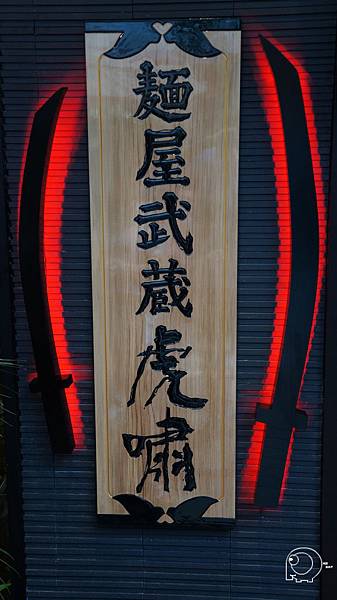 麺屋武蔵虎嘯